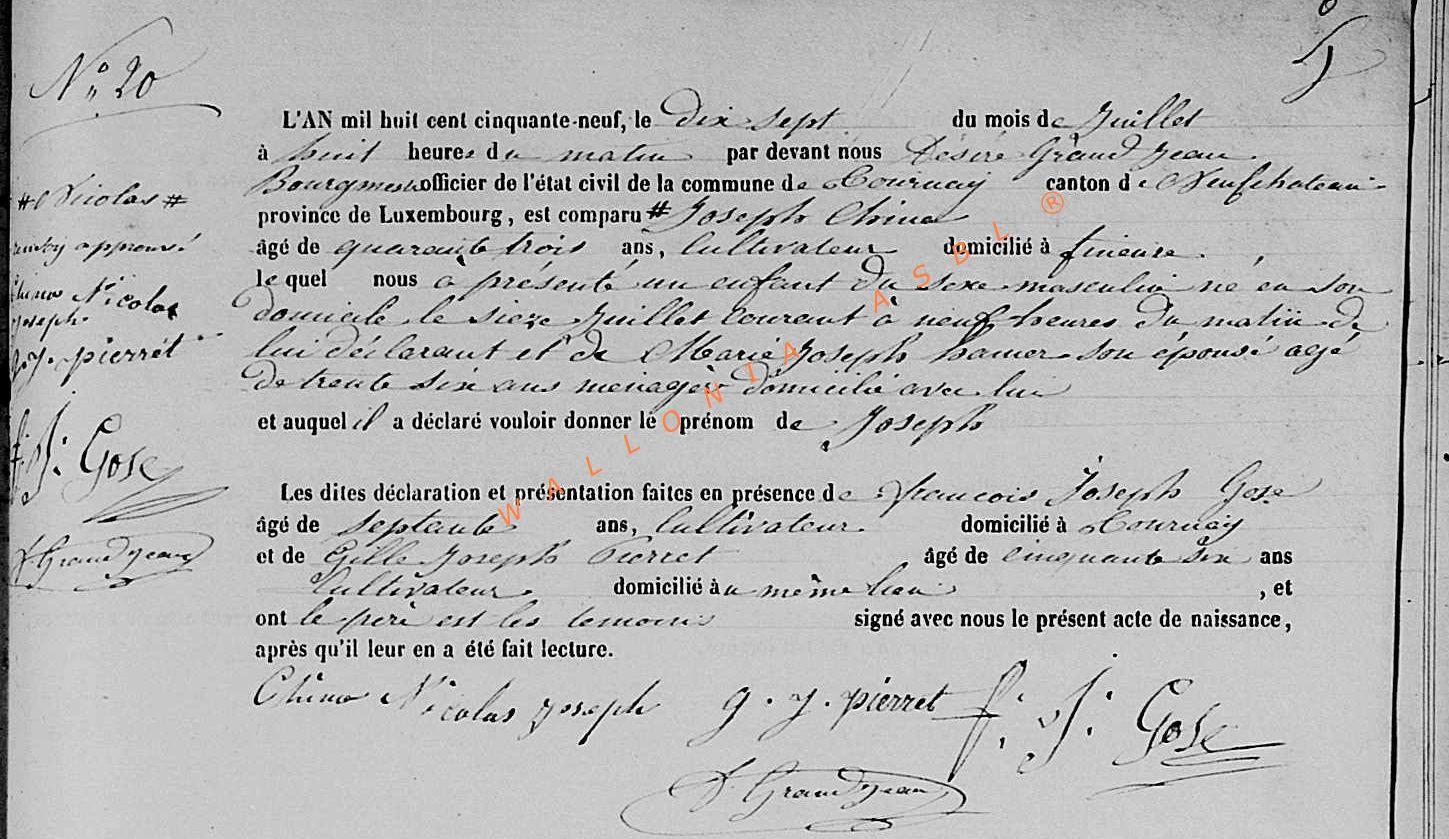 N° 20
5
L'AN mil huit cent cinquante-neuf, le dix sept du mois de Juillet
à huit heures du matin par devant nous Désiré Grand Jean
Bourgmestre officier de l'état civil de la commune de Tournay canton de Neufchateau
# Nicolas #
province de Luxembourg, est comparu # Joseph Chine
âgé de quarante trois ans, Cultivateur domicilié à
approuvé
le quel nous à présenté un enfant du sexe masculin né en son
Nicolas
Joseph
domicile le sieze Juillet courant à neuf heures du matin de
g. J. pierret
lui déclarant et de Marie Joseph hamer son épouse agé
de trente six ans menagère domicilié avec lui
et auquel il a déclaré vouloir donner le prénom de Joseph
f. J. Gose
Les dites déclaration et présentation faites en présence de françois Joseph Gose
âgé de septante ans, Cultivateur domicilié à Tournay
D Grand Jean
et de Gille Joseph Pierret âgé de cinquante six ans
Cultivateur domicilié àu même lieu , et
ont le père est les temoins signé avec nous le présent acte de naissance,
après qu'il leur en a été fait lecture.
Nicolas Joseph g. J. pierret f. J. Gose
D Grand Jean
WALLONIA ASBL ®